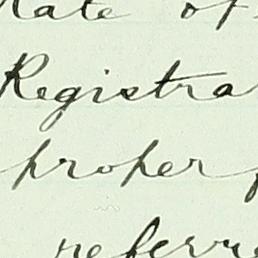 of
Registra
proper
referre